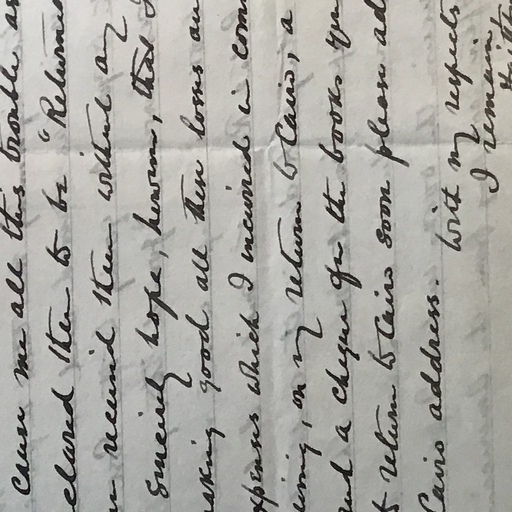 cause me all this trouble as
clared them to be "Returned
received them without any
sincerely hope, however, that I
making good all these losses an
expenses which I incurred in com
on my return to Cairo, a
and a cheque for the books you
to return to Cairo soon please ad
Cairo address.
With my respects
I remain,